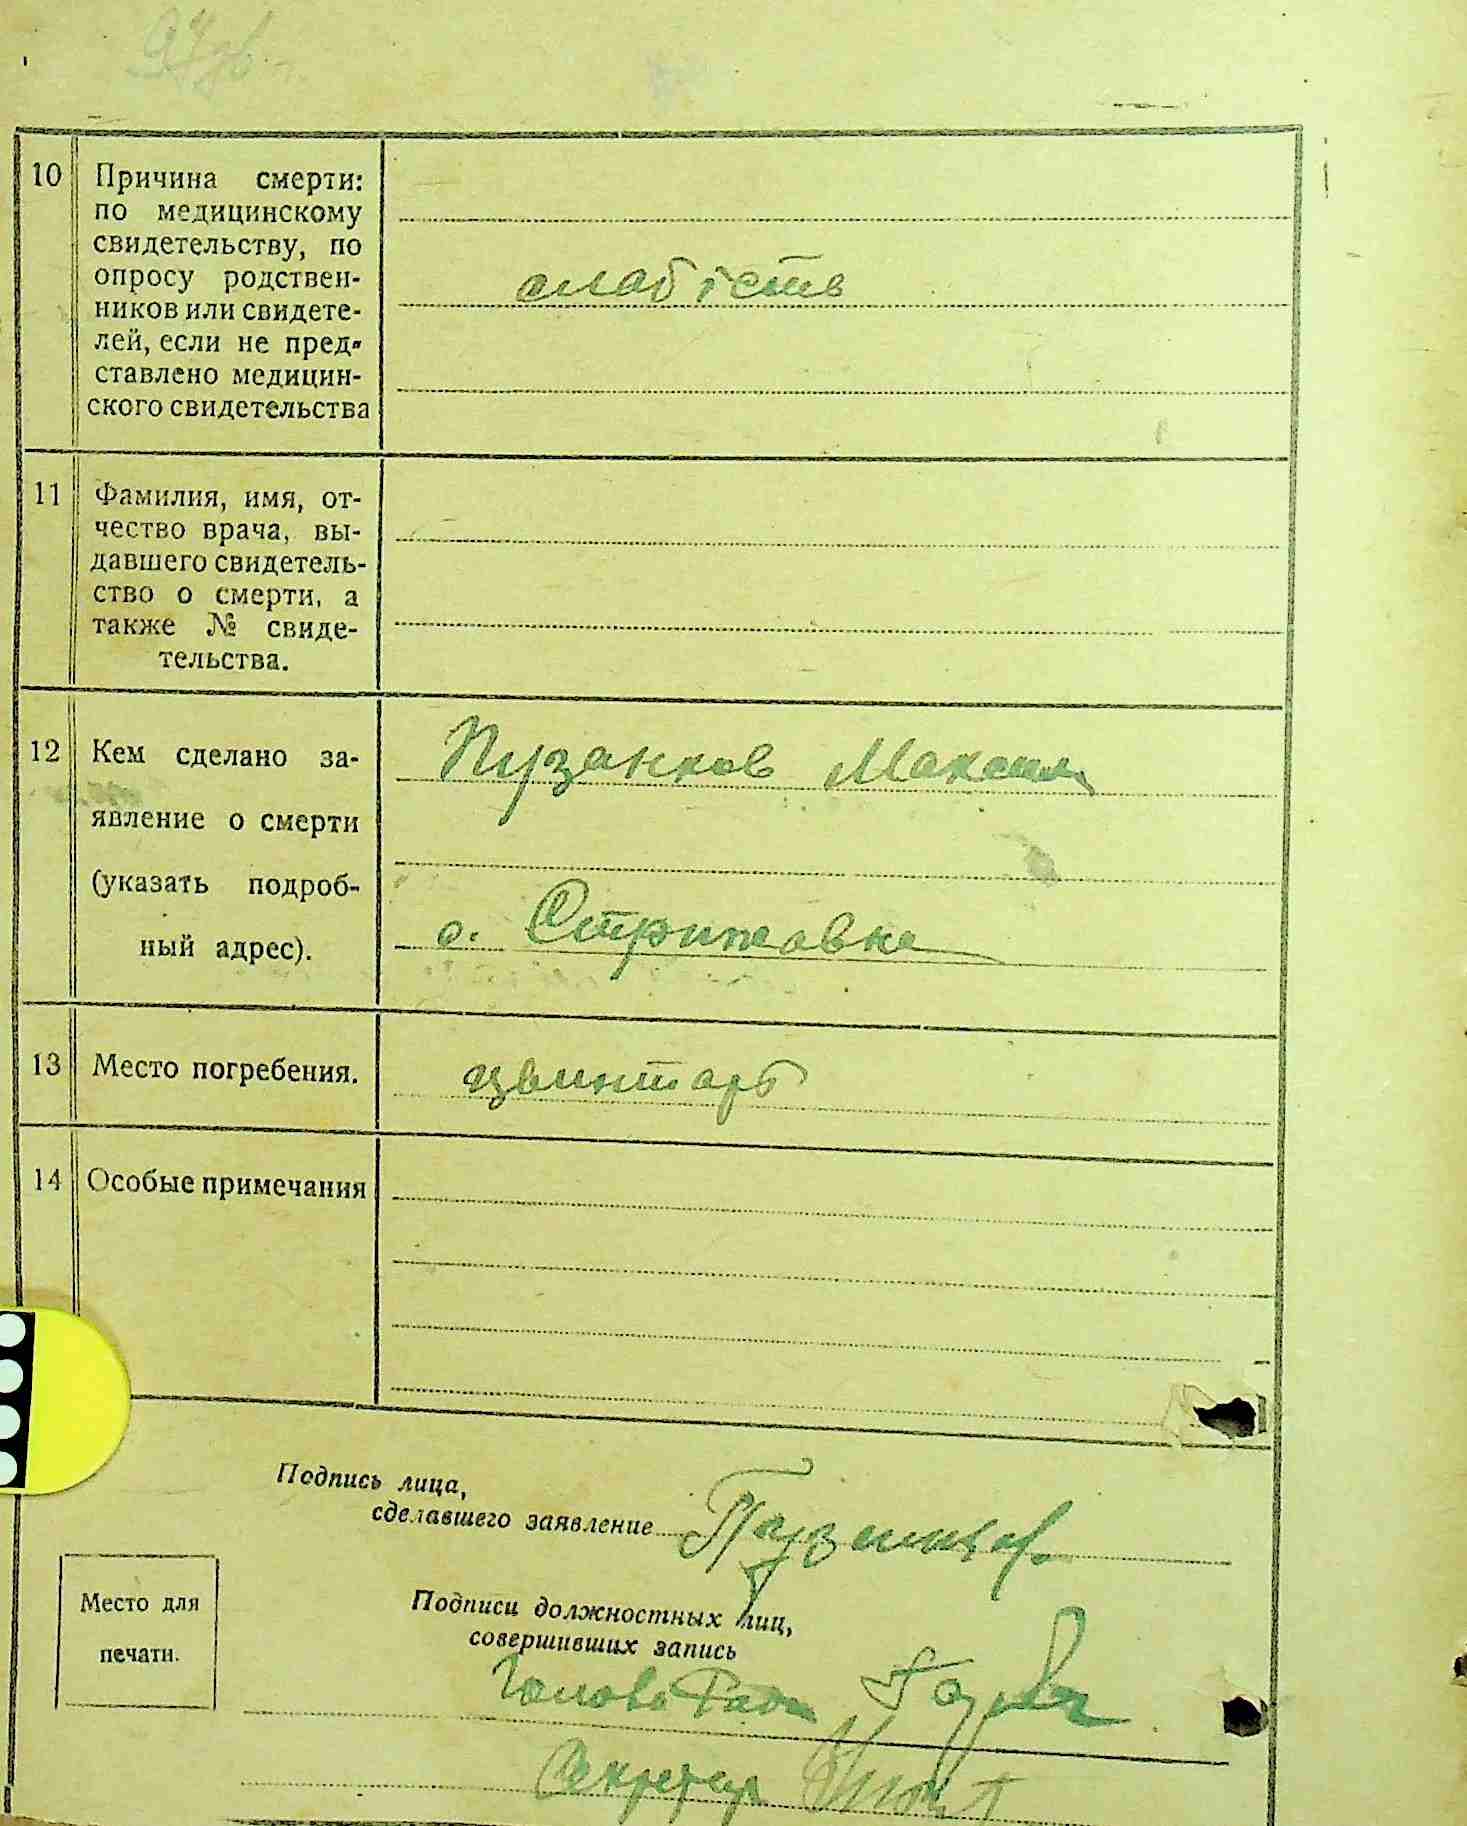 10 Причина смерти:
по медицинскому
свидетельству, по
опросу родствен-
ников или свидете-
лей, если не пред-
ставлено медицин-
ского свидетельства
слабість
11 Фамилия, имя, от-
чество врача, вы-
давшего свидетель-
ство о смерти, а
также № свиде-
тельства.
12 Кем сделано за-
явление о смерти
(указать подроб-
ный адрес).
Пузанков Максим
с. Стрижавка
13 Место погребения.
цвинтарь
14 Особые примечания
Подпись лица,
сделавшего заявление
Место для
печати.
Подписи должностных лиц,
совершивших запись
Голова Ради
Секретар